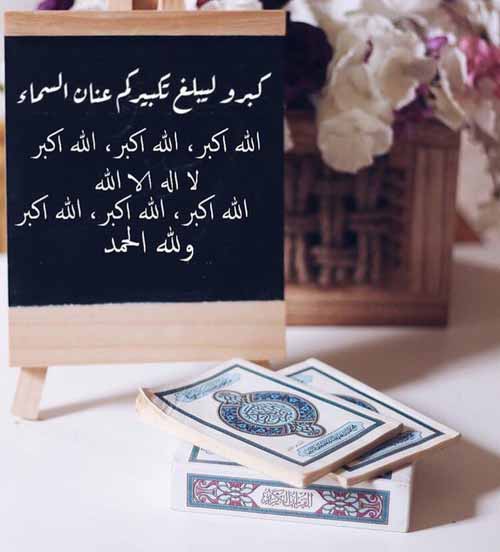 كبرو ليبلغ تكبيركم عنان السماء
الله اكبر، الله اكبر، الله اكبر
لا اله الا الله
الله اكبر، الله اكبر، الله اكبر
ولله الحمد